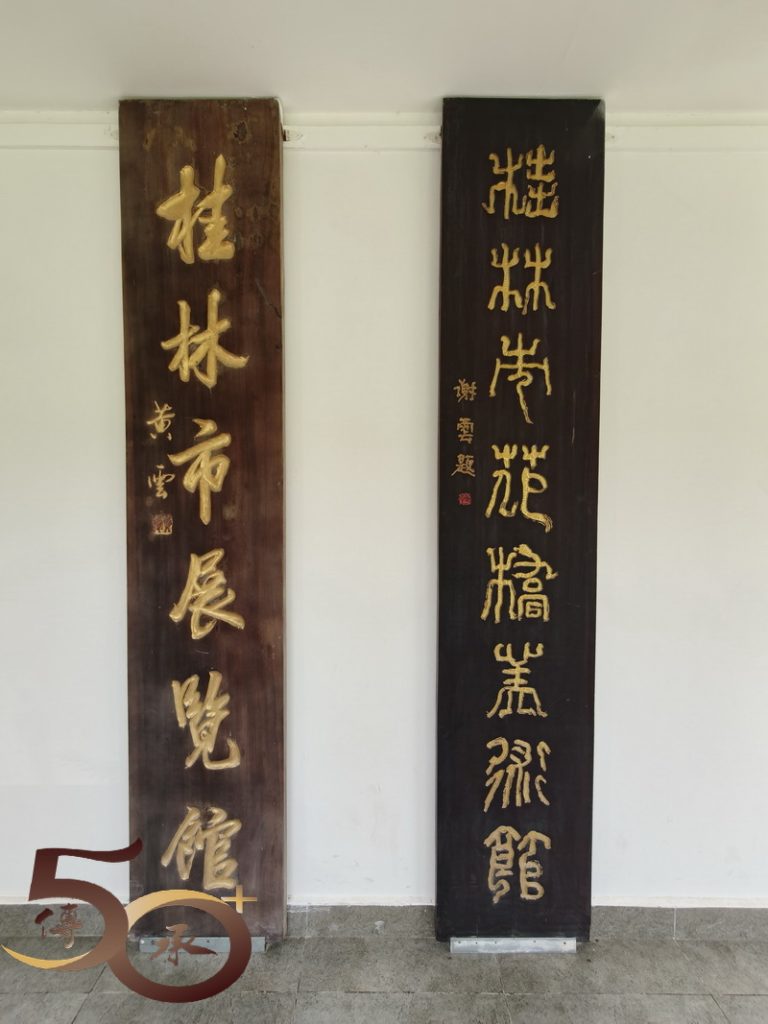 桂林市展覽館
黃雲
桂林市花橋美術館
謝雲題
50+
傳承